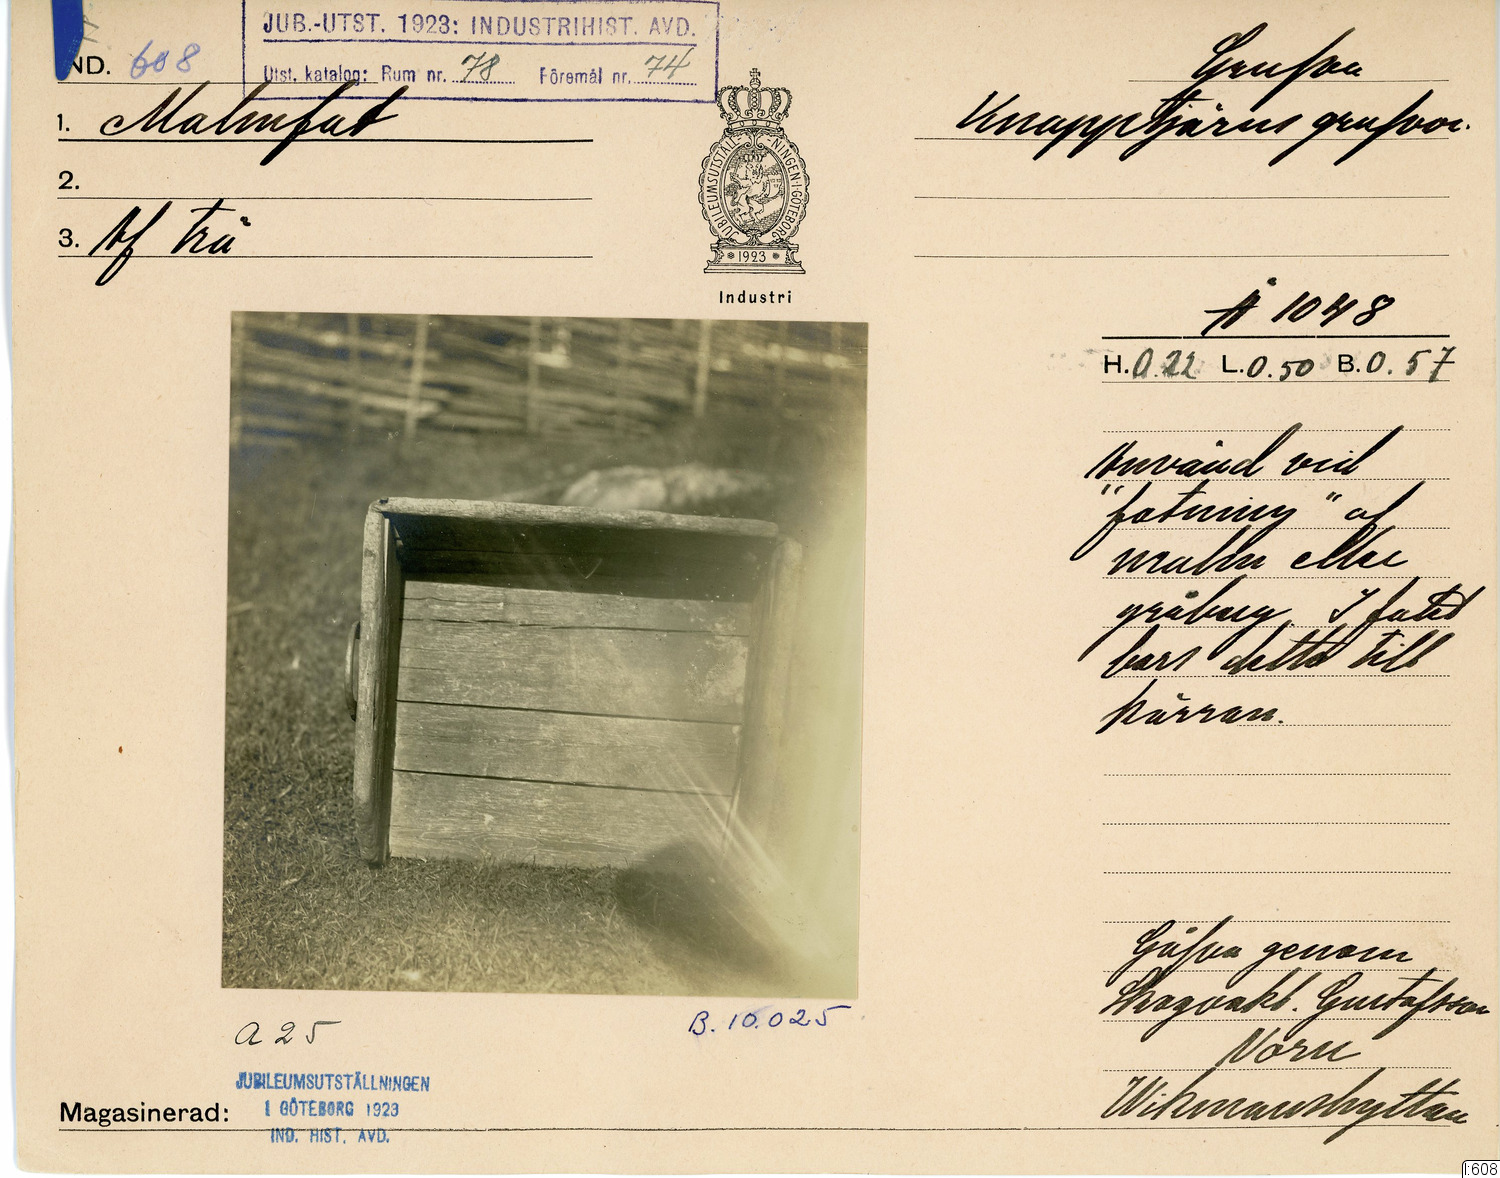 JUB.-UTST. 1923: INDUSTRIHIST. AVD.
Utst. katalog: Rum nr. 78 Föremål nr. 74
IND. 608
1. Malmfat
2.
3. Af trä
JUBILEUMSUTSTÄLLNINGEN I GÖTEBORG
* 1923 *
Industri
Grufva
Knapptjärns grufvor.
Å 1048
H. 0.22 L. 0.50 B. 0.57
Använd vid
"fatning" af
malm eller
gråberg. I fatet
bars detta till
kärran.
Gåfva genom
Skogvakt. Gustafsson
Norn
Wikmanshyttan
a 25
B. 10.025
JUBILEUMSUTSTÄLLNINGEN
I GÖTEBORG 1923
IND. HIST. AVD.
Magasinerad:
I:608